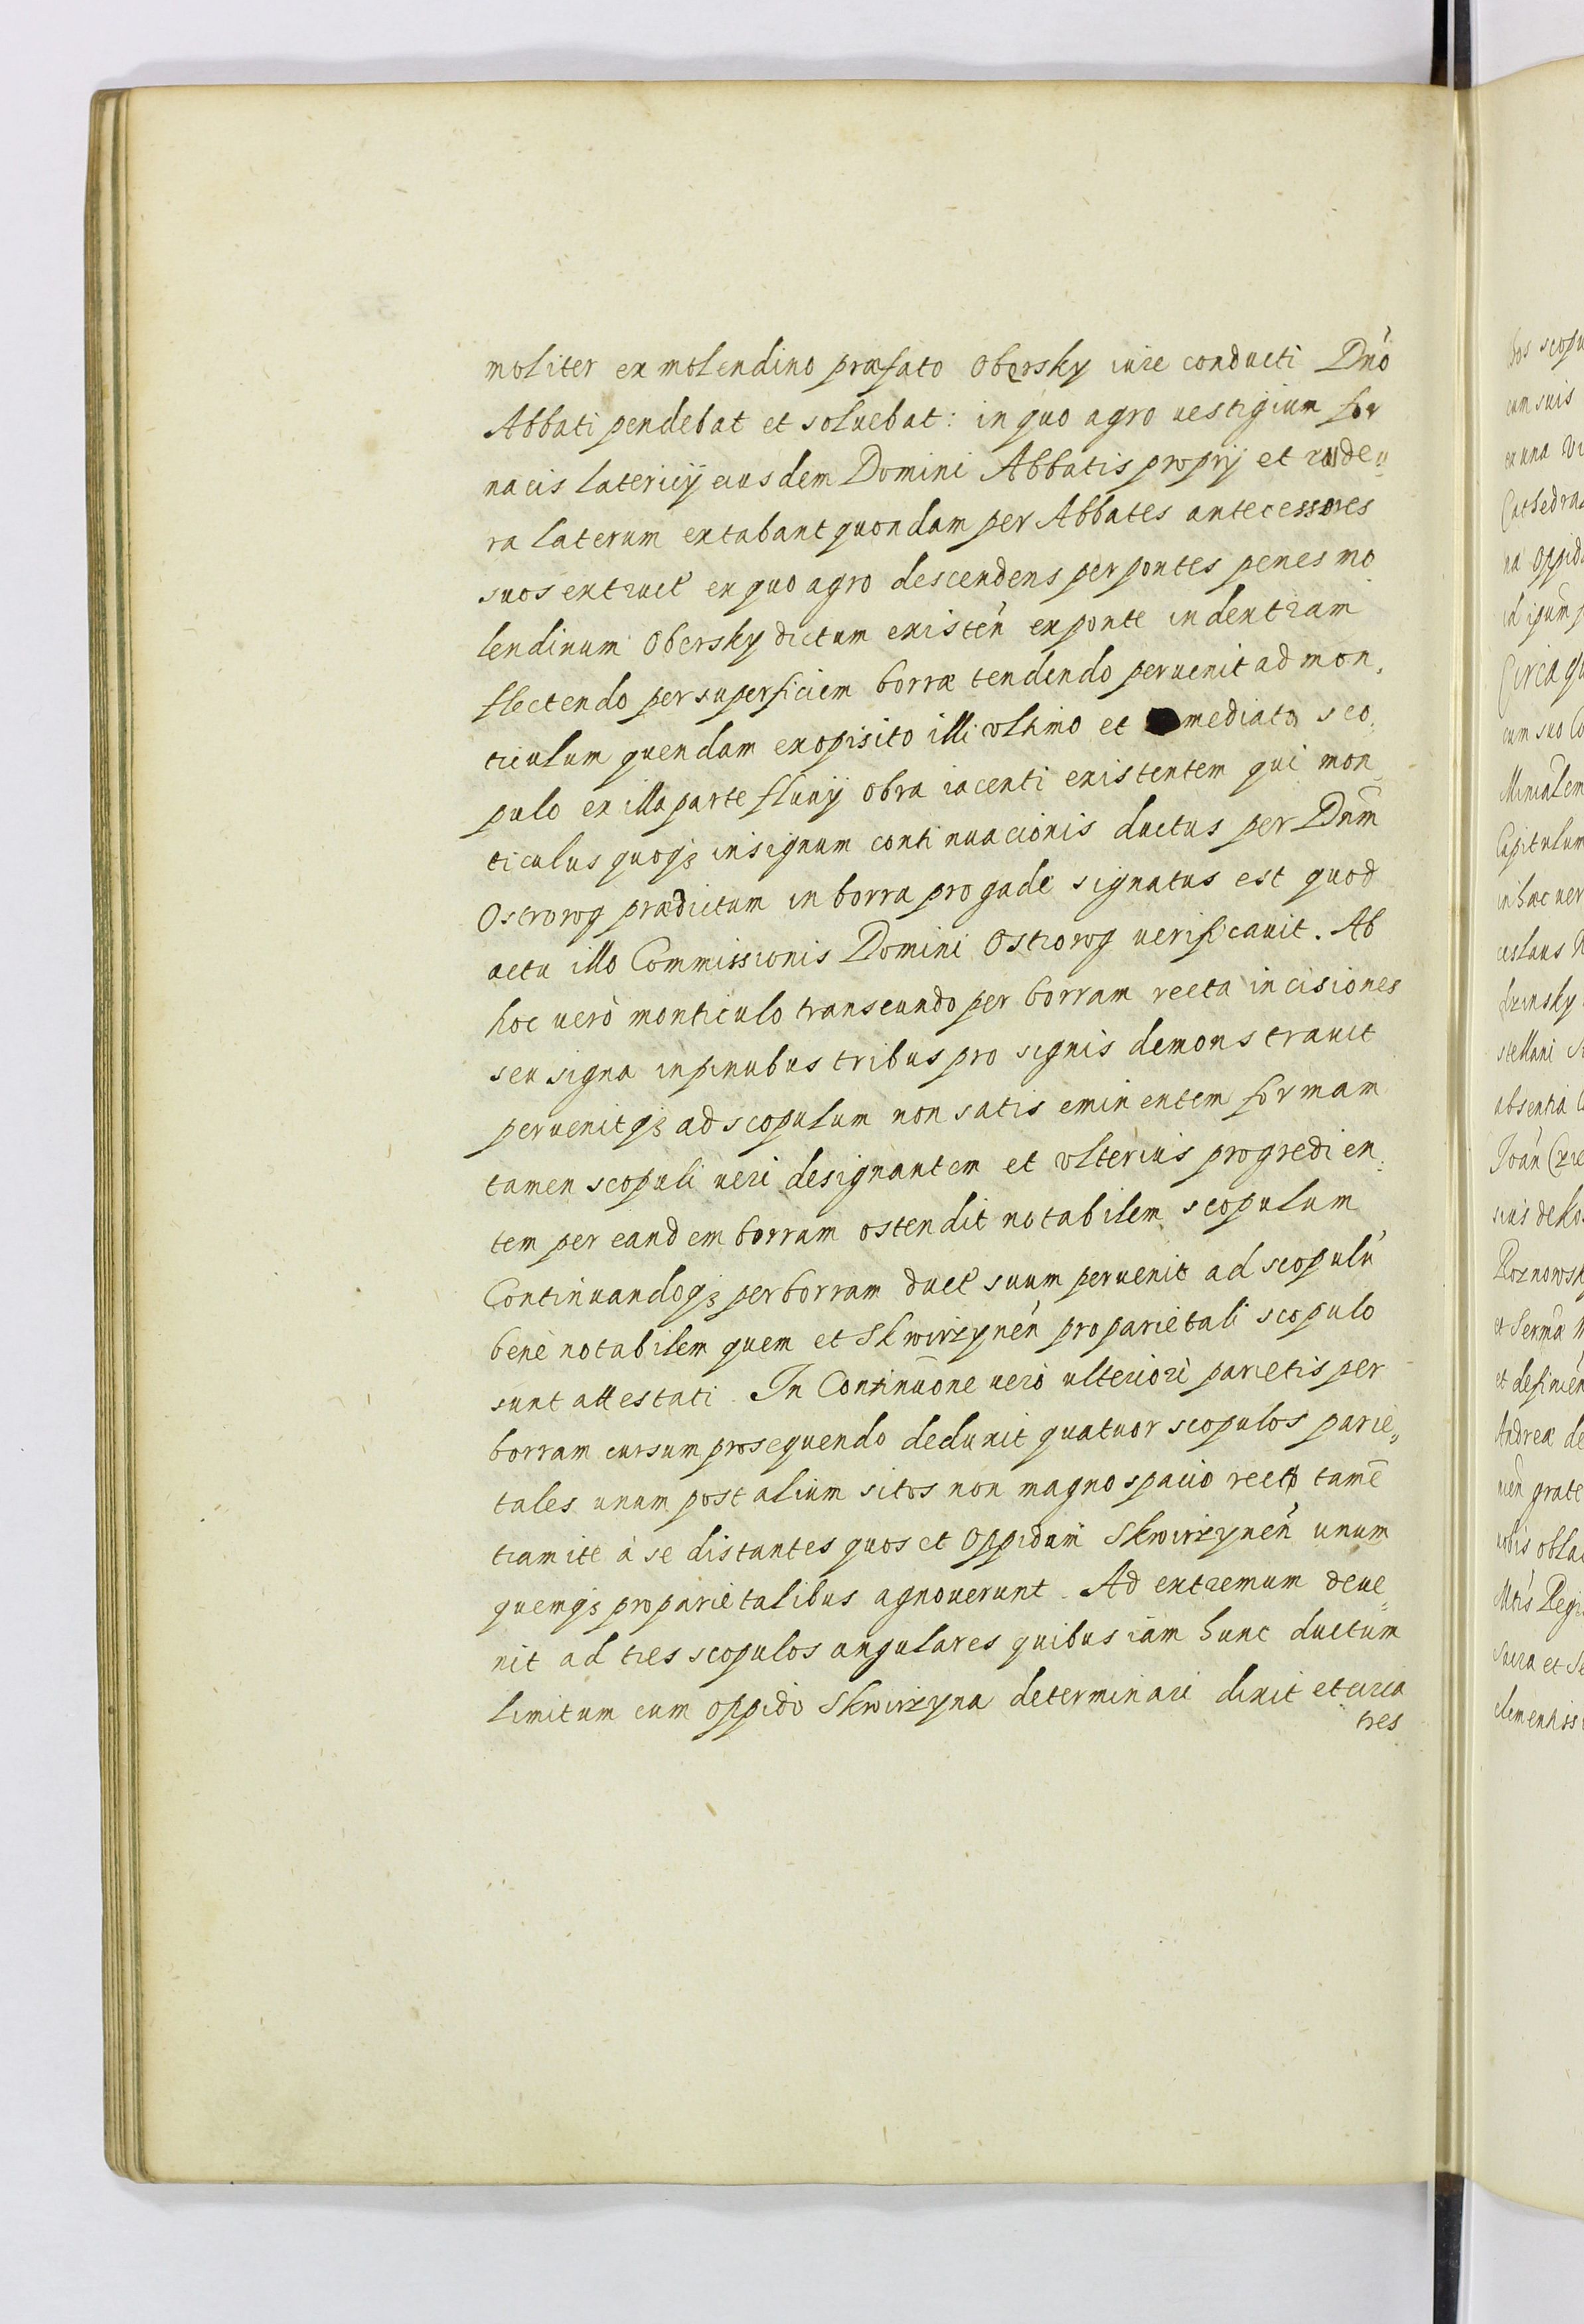 moliter ex molendino præfato Obersky iure conducti Dnõ
Abbati pendebat et soluebat: in quo agro uestigium for
nacis latericij eiusdem Domini Abbatis proprij et rude„
ra laterum extabant quondam per Abbates antecessores
suos extruct̃ ex quo agro descendens per pontes penes mo
lendinum Obersky dictum existeñ ex ponte in dextram
flectendo per superficiem borræ tendendo peruenit ad mon„
ticulum quendam exopisito illi vltimo et mediato sco„
pulo ex illa parte fluuij Obra iacenti existentem qui mon„
ticulus quoqȝ in signum continuacionis ductus per Dnm̃
Ostrorog prædictum in borra pro gade signatus est quod
actu illo Commissionis Domini Ostrorog uerificauit. Ab
hoc uerò monticulo transeundo per borram recta incisiones
seu signa in pinubus tribus pro signis demonstrauit
peruenitqȝ ad scopulum non satis eminentem formam
tamen scopuli ueri designantem et vlterius progredien„
tem per eandem borram ostendit notabilem scopulum
Continuandoqȝ per borram duct̃ suum peruenit ad scopulũ
benè notabilem quem et Skwirzyneñ pro parietali scopulo
sunt attestati. In Continuõne uerò ulteriori parietis per
borram cursum prosequendo deduxit quatuor scopulos parie„
tales unum post alium sitos non magno spacio recto tamẽ
tramite à se distantes quos et Oppidum Skwirzyneñ unum
quemqȝ pro parietalibus agnouerunt. Ad extremum deue„
nit ad tres scopulos angulares quibus iam hunc ductum
limitum cum oppido Skwirzyna determinari dixit et circa
tres
bos scopu
cum suis
ex una
Cathedra
na Oppid
id ipsum
Circa
cum suo
Capitulum
in hac uer
stellani
absentia
et
Andreæ de
grate
obla
Regi
et
clementiss